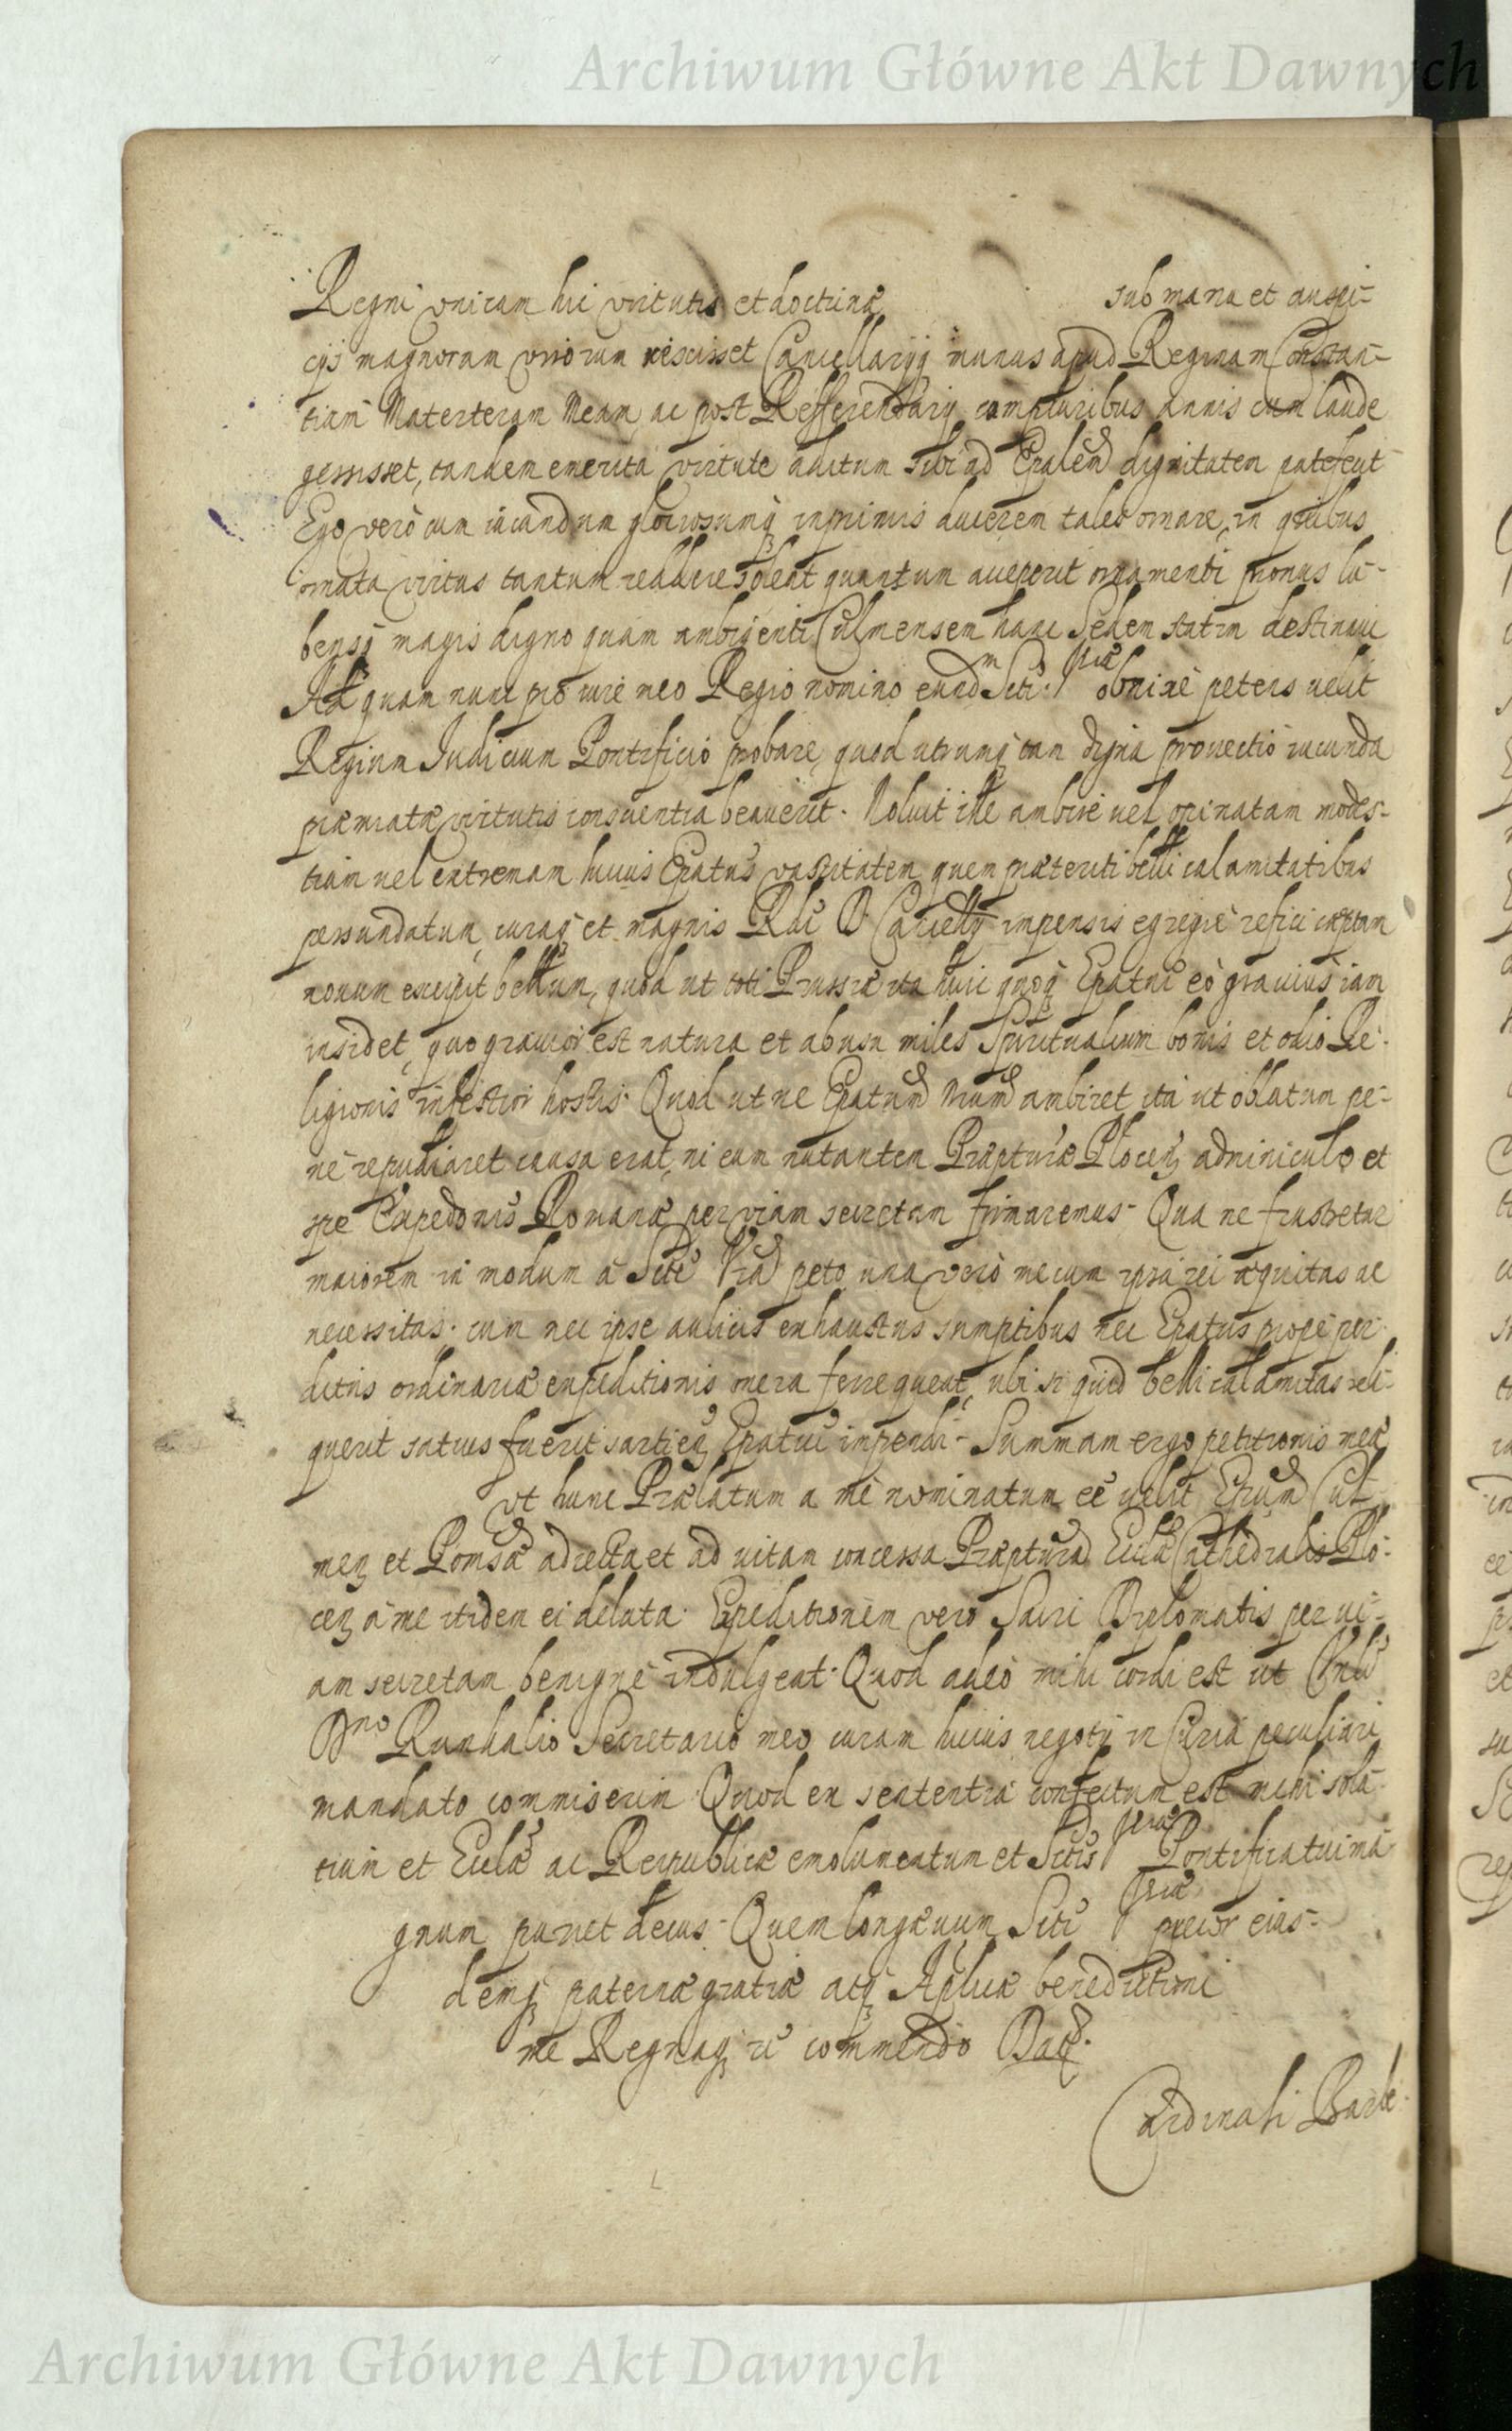 Archiwum Główne Akt Dawnych
Regni vnicam hic virtutis et doctrinæ sub manu et auspi-
cijs magnorum virorum Cancellarijq; munus apud Reginam Constan-
tiam Materteram Meam ac post Refferendarij compluribus annis cum laude
gessisset, tandem emerita virtute aditum sibi ad Epalem dignitatem patefecit
Ego vero cum iucundum gloriosumq; inprimis ducerem tales ornare, in quibus
ornata virtus tantum reddere soleat quantum acceperit ornamenti pronus lu-
bensq; magis digno quam ambienti Culmensem hanc Sedem statim destinaui
Ad quam nunc pro iure meo Regio nomino eundm Scti: Vræ obnixè petens uelit
Regium Iudicium Pontificio probare, quod utrumq; tam digna prouectio iucunda
præmiatæ virtutis conscientia beauerit. Noluit ille ambire uel opinatam modes-
tiam uel extremam huius Epatus vastitatem quem præteriti belli calamitatibus
pessundatum, curaq; et magnis Rdi D. impensis egregiè refici cæptum
nouum excepit bellum, quod ut toti Prussiæ ita huic quoq; Epatui eò grauius iam
insidet, quo grauior est natura et abusu miles Spiritualium bonis et odio Re-
ligionis infestior hostis. Quod ut ne Epatum Num ambiret ita ut oblatum pe-
nè repudiaret causa erat, ni eum nutantem Præpturæ Plocen; adminiculo et
spe Expedonis Romanæ per viam secretam firmaremus. Qua ne frustretur
maiorem in modum à Scte Vra peto una vero mecum ipsa rei æquitas ac
necessitas. cum nec ipse aulicis exhaustus sumptibus nec Epatus propè per-
ditus ordinariæ expeditionis onera ferre queat, ubi si quid belli calamitas reli-
querit satius fuerit sarticn; Epatui inpendi. Summam ergo petitionis meæ
vt hunc Prælatum a me nominatum eê uelit Epum Cul-
men; et Poms͠a adrecta et ad uitam concessa Præptura Eccla Cathedralis Plo-
cen; à me itidem ei delata. Expeditionem vero Sacri Diplomatis per ui-
am secretam benignè indulgeat. Quod adeò mihi cordi est ut
Dno Runhalio Secretario meo curam huius negotij in Curia peculiari
mandato commiserim. Quod ex sententia confectum est mihi sola-
tium et Eccla ac Reipublicæ emolumentum et Sctis Vræ Pontificatui ma-
gnum pariet decus. Quem longæuum Scti Vræ precor eius-
demq; paternæ gratiæ atq; Aplicæ benedictioni
me Regnaq; commendo Dat.
Cardinali Barbe-
Archiwum Główne Akt Dawnych